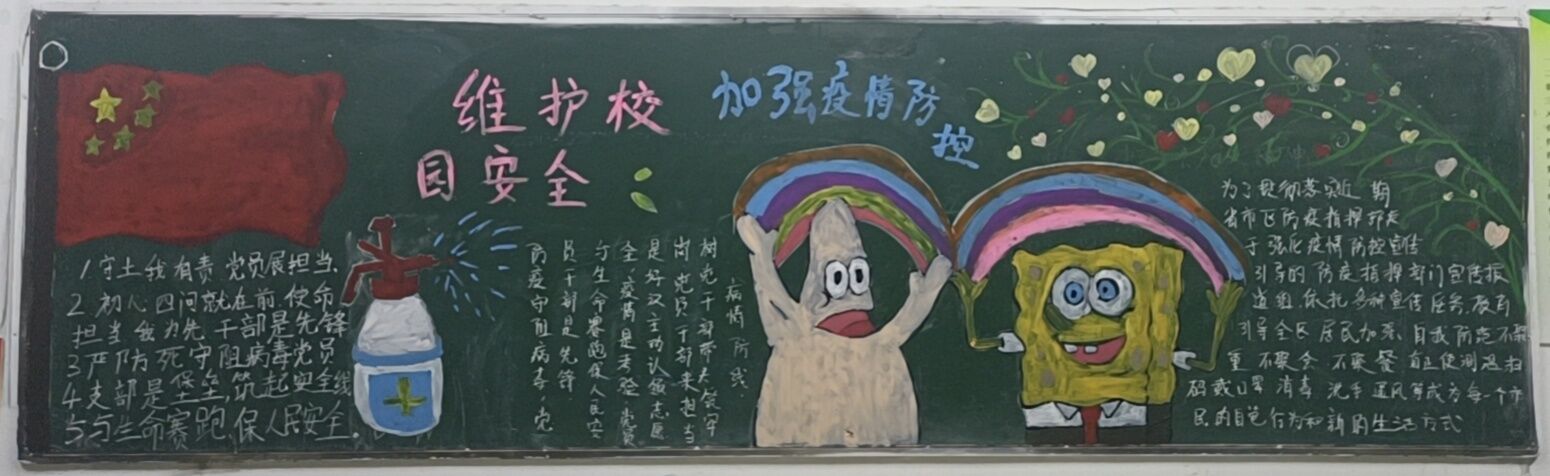 维护校
园安全
加强疫情防
控
1守土我有责 党员展担当
2.初心四问就在前,使命
担当我为先 干部是先锋
3严防死守阻病毒党员
4支部是堡垒,筑起安全线
5与生命赛跑,保人民安全.
病情防线
树党干部带头领守
岗党员干部来担当
是好汉主动认领志愿
全疫情是考验党员
与生命赛跑保人民安
员干部是先锋
防疫守阻病毒,党
为了贯彻落实近期
省市区防疫指挥部关
于强化疫情防控宣传
引导的防疫指挥部门宣传报
道组依托多种宣传任务
引导全区居民加强自我防范不聚
重 不聚会 不聚餐 自正使测温扫
码戴口罩 消毒 洗手 通风等成为每一个市
民的自觉行为和新的生活方式